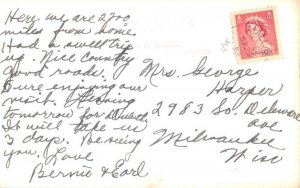 Here we are 2700
miles from home.
Had a swell trip
up. Nice Country
good roads.
Sure enjoying our
visit. Leaving
tomorrow for
It will take us
3 days. Be seeing
you. Love
Bernie & Earl
Mrs. George
Harper
2983 So. Delaware
ave
Milwaukee
Wisc